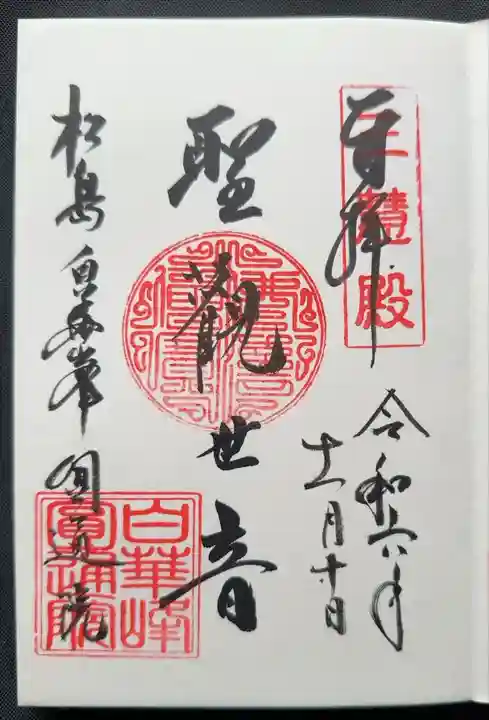 奉拝
三慧殿
令和六年
十一月十日
聖観世音
松島白華峯圓通院
白華峰
圓通院